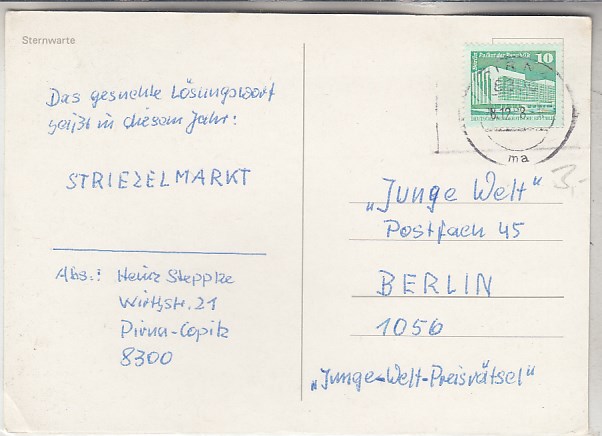 Sternwarte
Das gesuchte Lösungswort
heißt in diesem Jahr:
STRIEZELMARKT
Abs.: Heinz Steppke
Wirthstr. 21
Pirna-Copitz
8300
10
8.12.8
ma
3,-
„Junge Welt"
Postfach 45
BERLIN
1056
„Junge-Welt-Preisrätsel"